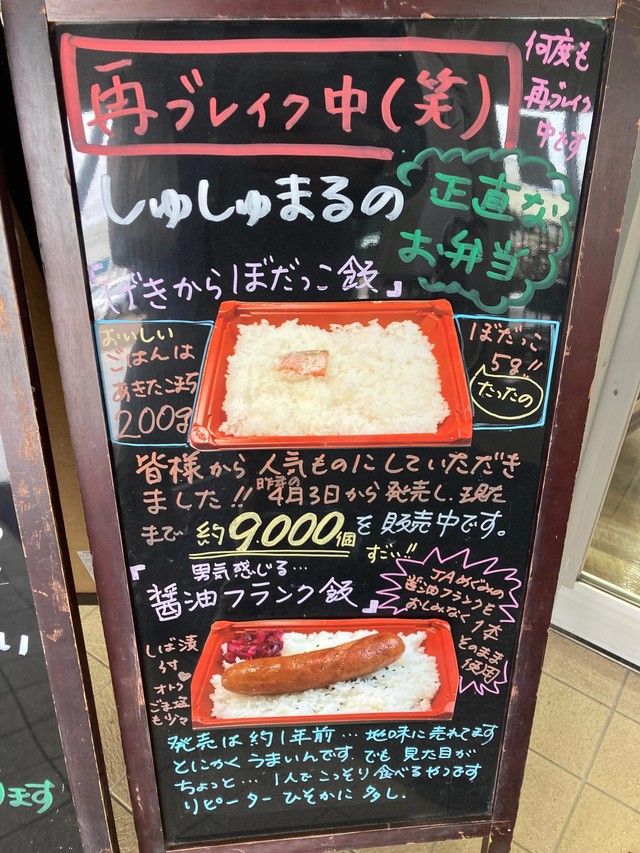 再ブレイク中(笑)
何度も
再ブレイク
中です
しゅしゅまるの
正直な
お弁当
『げきからぼだっこ飯』
おいしい
ごはんは
あきたこまち
200g
ぼだっこ
5g!!
たったの
皆様から人気ものにしていただき
ました!!昨年の4月3日から発売し、現在
まで約9,000個を販売中です。
すごい!!
『男気感じる…
醤油フランク飯』
JAめぐみの
醤油フランクを
おしみなく1本
そのまま
使用
しば漬
付♥
オトク
ごま塩
もジマ
発売は約1年前…地味に売れてます
とにかくうまいんです。でも見た目が
ちょっと…1人でこっそり食べるやつです
リピーターひそかに多し.
い
ます